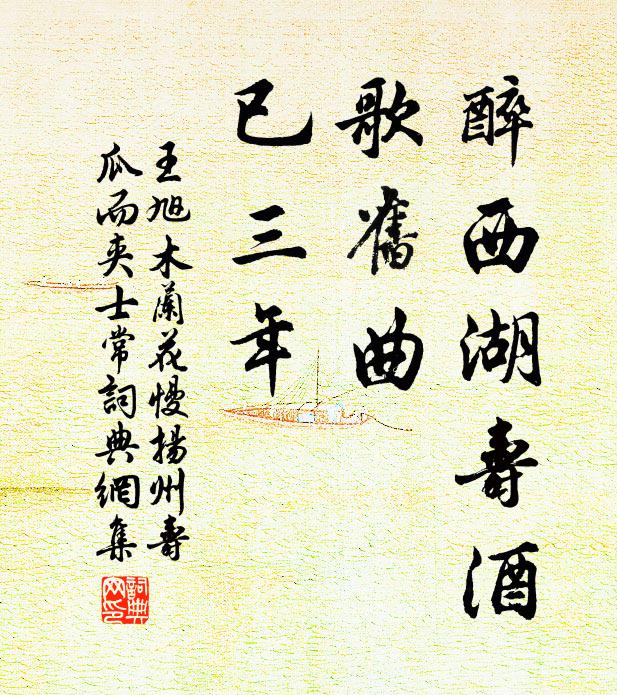 醉西湖壽酒
歌舊曲
已三年
王旭木蘭花慢揚州壽
瓜而夾士常詞典網集
詞典
网印